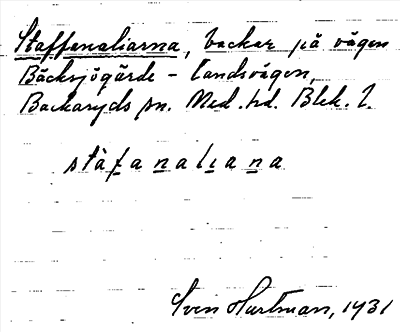 Staffenaliarna, backar på vägen
Bäcksjögärde - landsvägen,
Backaryds sn. Med. hd. Blek. l.
stàfanaliana
Sven Hartman, 1931